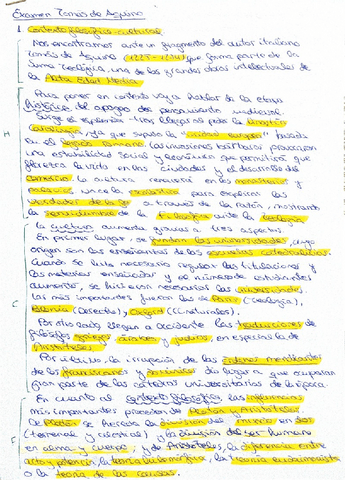 Examen Tomás de Aquino
1. Contexto filosófico-cultural
Nos encontramos ante un fragmento del autor italiano
Tomás de Aquino (1225-1274) que forma parte de la
Suma Teológica, una de las grandes obras intelectuales de
la Plena Edad Media.
Para poner en contexto voy a hablar de la etapa
histórica del apogeo del pensamiento medieval.
Surge el esplendor tras llegar al poder la dinastía
carolingia, ya que supuso la unidad europea basada
en el Imperio romano. Las invasiones bárbaras provocaron
una estabilidad social y económica que permitieron que
florezca la vida en las ciudades y el desarrollo del
comercio. La cultura renació en los monasterios y
palacios, nace la escolástica para explicar las
verdades de la fe a través de la razón, mostrando
la servidumbre de la filosofía ante la teología.
La cultura aumenta gracias a tres aspectos
En primer lugar, se fundan las universidades, cuyo
origen son las enseñanzas de las escuelas catedralicias.
Cuando se hizo necesario regular las titulaciones y
las materias enseñadas y el número de estudiantes
aumentó, se hicieron necesarias las universidades.
Las más importantes fueron las de París (Teología),
Bolonia (Derecho), Oxford (CC. naturales).
Por otro lado llegan a occidente las traducciones de
filósofos griegos, árabes y judíos, en especial a de
Aristóteles.
Por último, la irrupción de las órdenes mendicantes
de los franciscanos y dominicos dio lugar a que ocuparan
gran parte de las cátedras universitarias de la época.
En cuanto al contexto filosófico, las influencias
más importantes proceden de Platón y Aristóteles.
De Platón se hereda la división del mundo en dos
(terrenal y celestial) y la división del ser humano
en alma y cuerpo; y de Aristóteles, la diferencia entre
acto y potencia, la teoría hilemórfica, la
o la teoría de las causas.